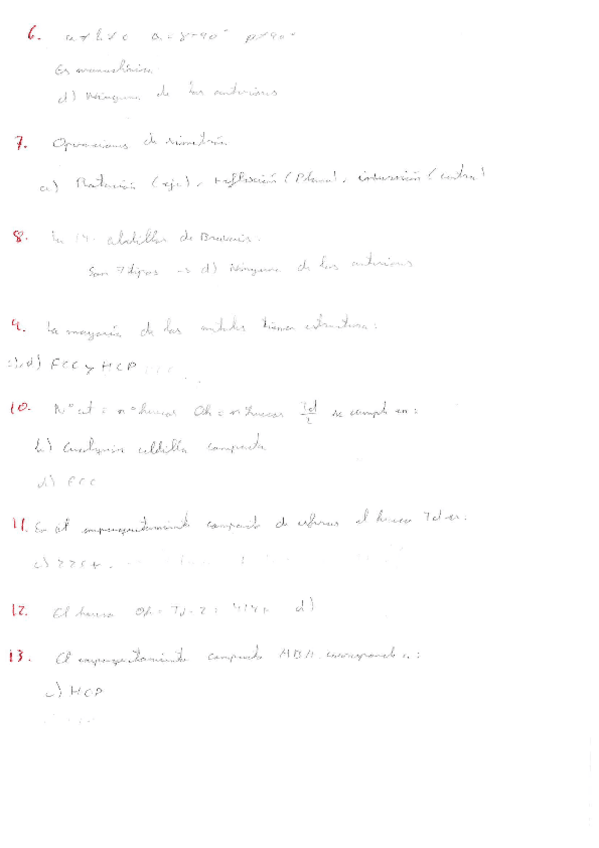 6. a ≠ b ≠ c α = γ = 90° β ≠ 90°
Es monoclínico
d) Ninguna de las anteriores
7. Operaciones de simetría
a) Rotación (eje), reflexión (Plano), inversión (centro)
8. 14 celdillas de Bravais.
Son 7 tipos → d) Ninguna de las anteriores
9. La mayoría de los metales tienen estructura:
d) FCC y HCP
10. Nº at = nº huecos Oh = nº huecos Td/2 se cumple en:
b) Cualquier celdilla compacta
d) FCC
11. En el empaquetamiento compacto de esferas el hueco Td es:
c)
12. El hueco Oh d)
13. El empaquetamiento compacto ABA corresponde a:
c) HCP